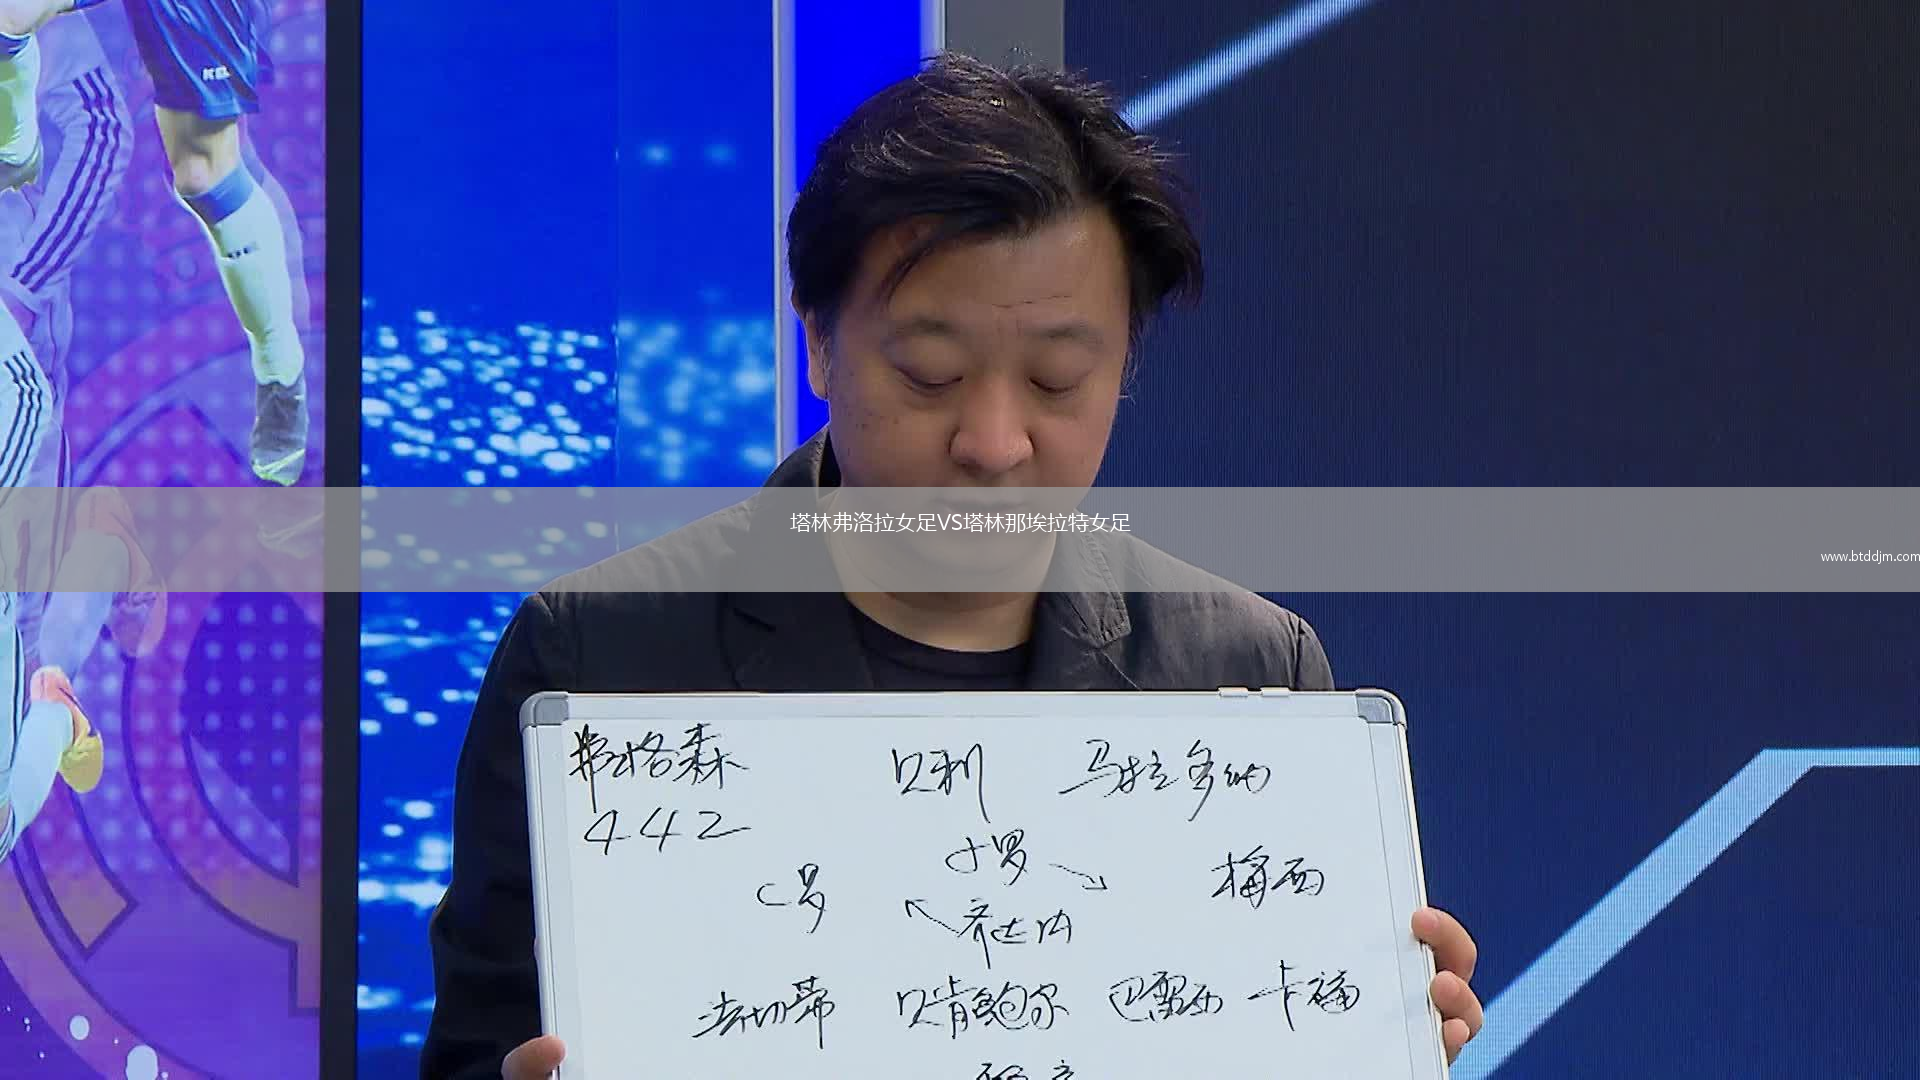 KEL
塔林弗洛拉女足VS塔林那埃拉特女足
www.btddjm.com
弗格森 贝利 马拉多纳
442
小罗
C罗 梅西
齐达内
法切蒂 贝肯鲍尔 巴雷西 卡福